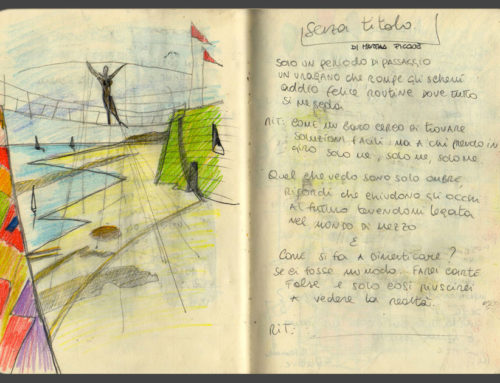 Senza titolo.
DI MARTINA
SOLO UN PERIODO DI PASSAGGIO
UN URAGANO CHE ROMPE GLI SCHEMI
ADDIO FELICE ROUTINE DOVE TUTTO
SI
RIT: COME UN BARO CERCO DI TROVARE
SOLUZIONI FACILI, MA A CHI PRENDO IN
GIRO SOLO ME, SOLO ME, SOLO ME
QUEL CHE VEDO SONO SOLO OMBRE
RICORDI CHE CHIUDONO GLI OCCHI
AL FUTURO TENENDOMI LEGATA
NEL MONDO DI MEZZO
E
COME SI FA A DIMENTICARE?
SE CI FOSSE UN MODO.. FAREI CARTE
FALSE E SOLO COSÌ RIUSCIREI
A VEDERE LA REALTÀ.
RIT: